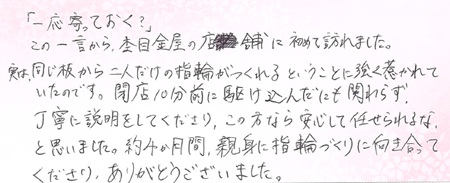 「一応寄っておく?」
この一言から、杢目金屋の店舗に初めて訪れました。
実は、同じ板から二人だけの指輪がつくれるということに強く惹かれて
いたのです。閉店10分前に駆け込んだにも関わらず、
丁寧に説明をしてくださり、この方なら安心して任せられるな、
と思いました。約4か月間、親身に指輪づくりに向き合って
くださり、ありがとうございました。